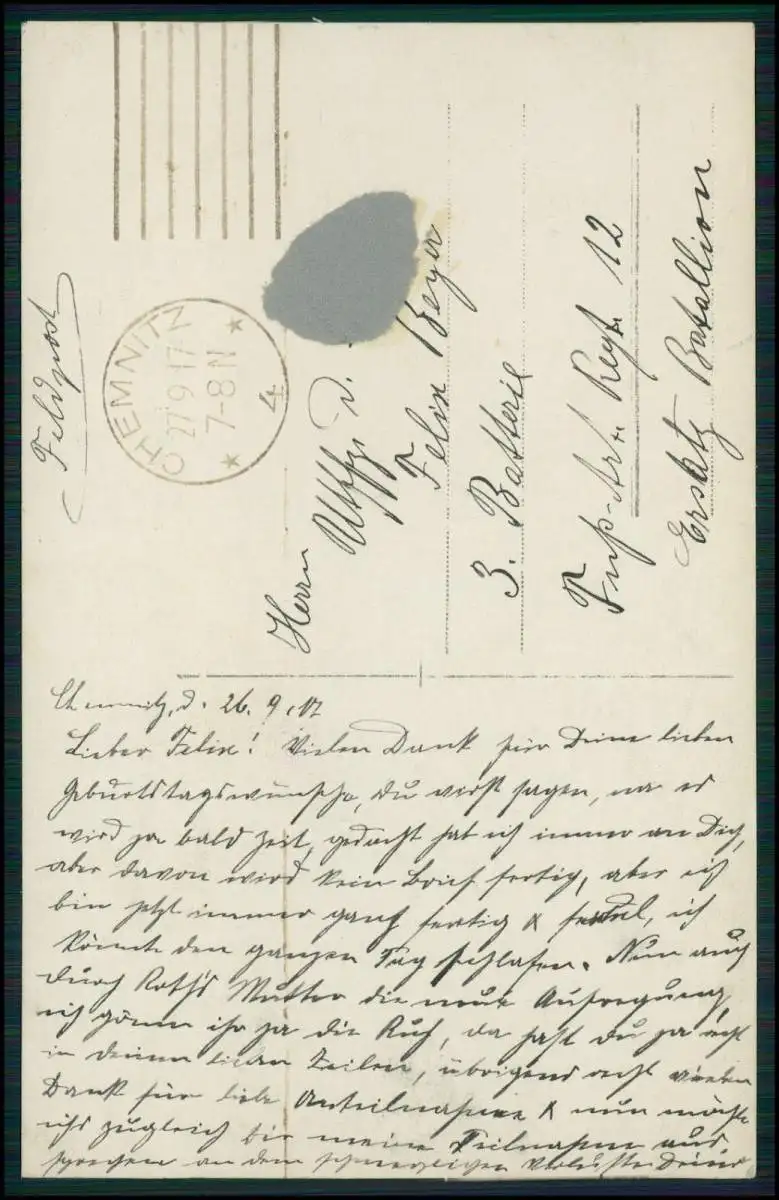 Feldpost
CHEMNITZ
27 9 17
7-8 N
* 4 *
Herrn
Uffz. d.
Felix Beyer
3. Batterie
Fuß-Art. Regt. 12
Ersatz Batallion
Chemnitz, d. 26. 9. 17
Lieber Felix! Vielen Dank für Deine lieben
Geburtstagswünsche, du wirst sagen, na es
wird ja bald Zeit, gedacht hab ich immer an Dich,
aber davon wird kein Brief fertig, aber ich
bin jetzt immer ganz fertig & ich
könnte den ganzen Tag schlafen. Nun auch
durch Roth's Mutter die neue Aufregung,
ich gönn ihr ja die Ruh, da hast du ja recht
in deinen lieben Zeilen, übrigens recht vielen
Dank für liebe Anteilnahme & nun möchte
ich zugleich bei meine Teilnahme aus
sprechen an dem schmerzlichen Verluste Deines